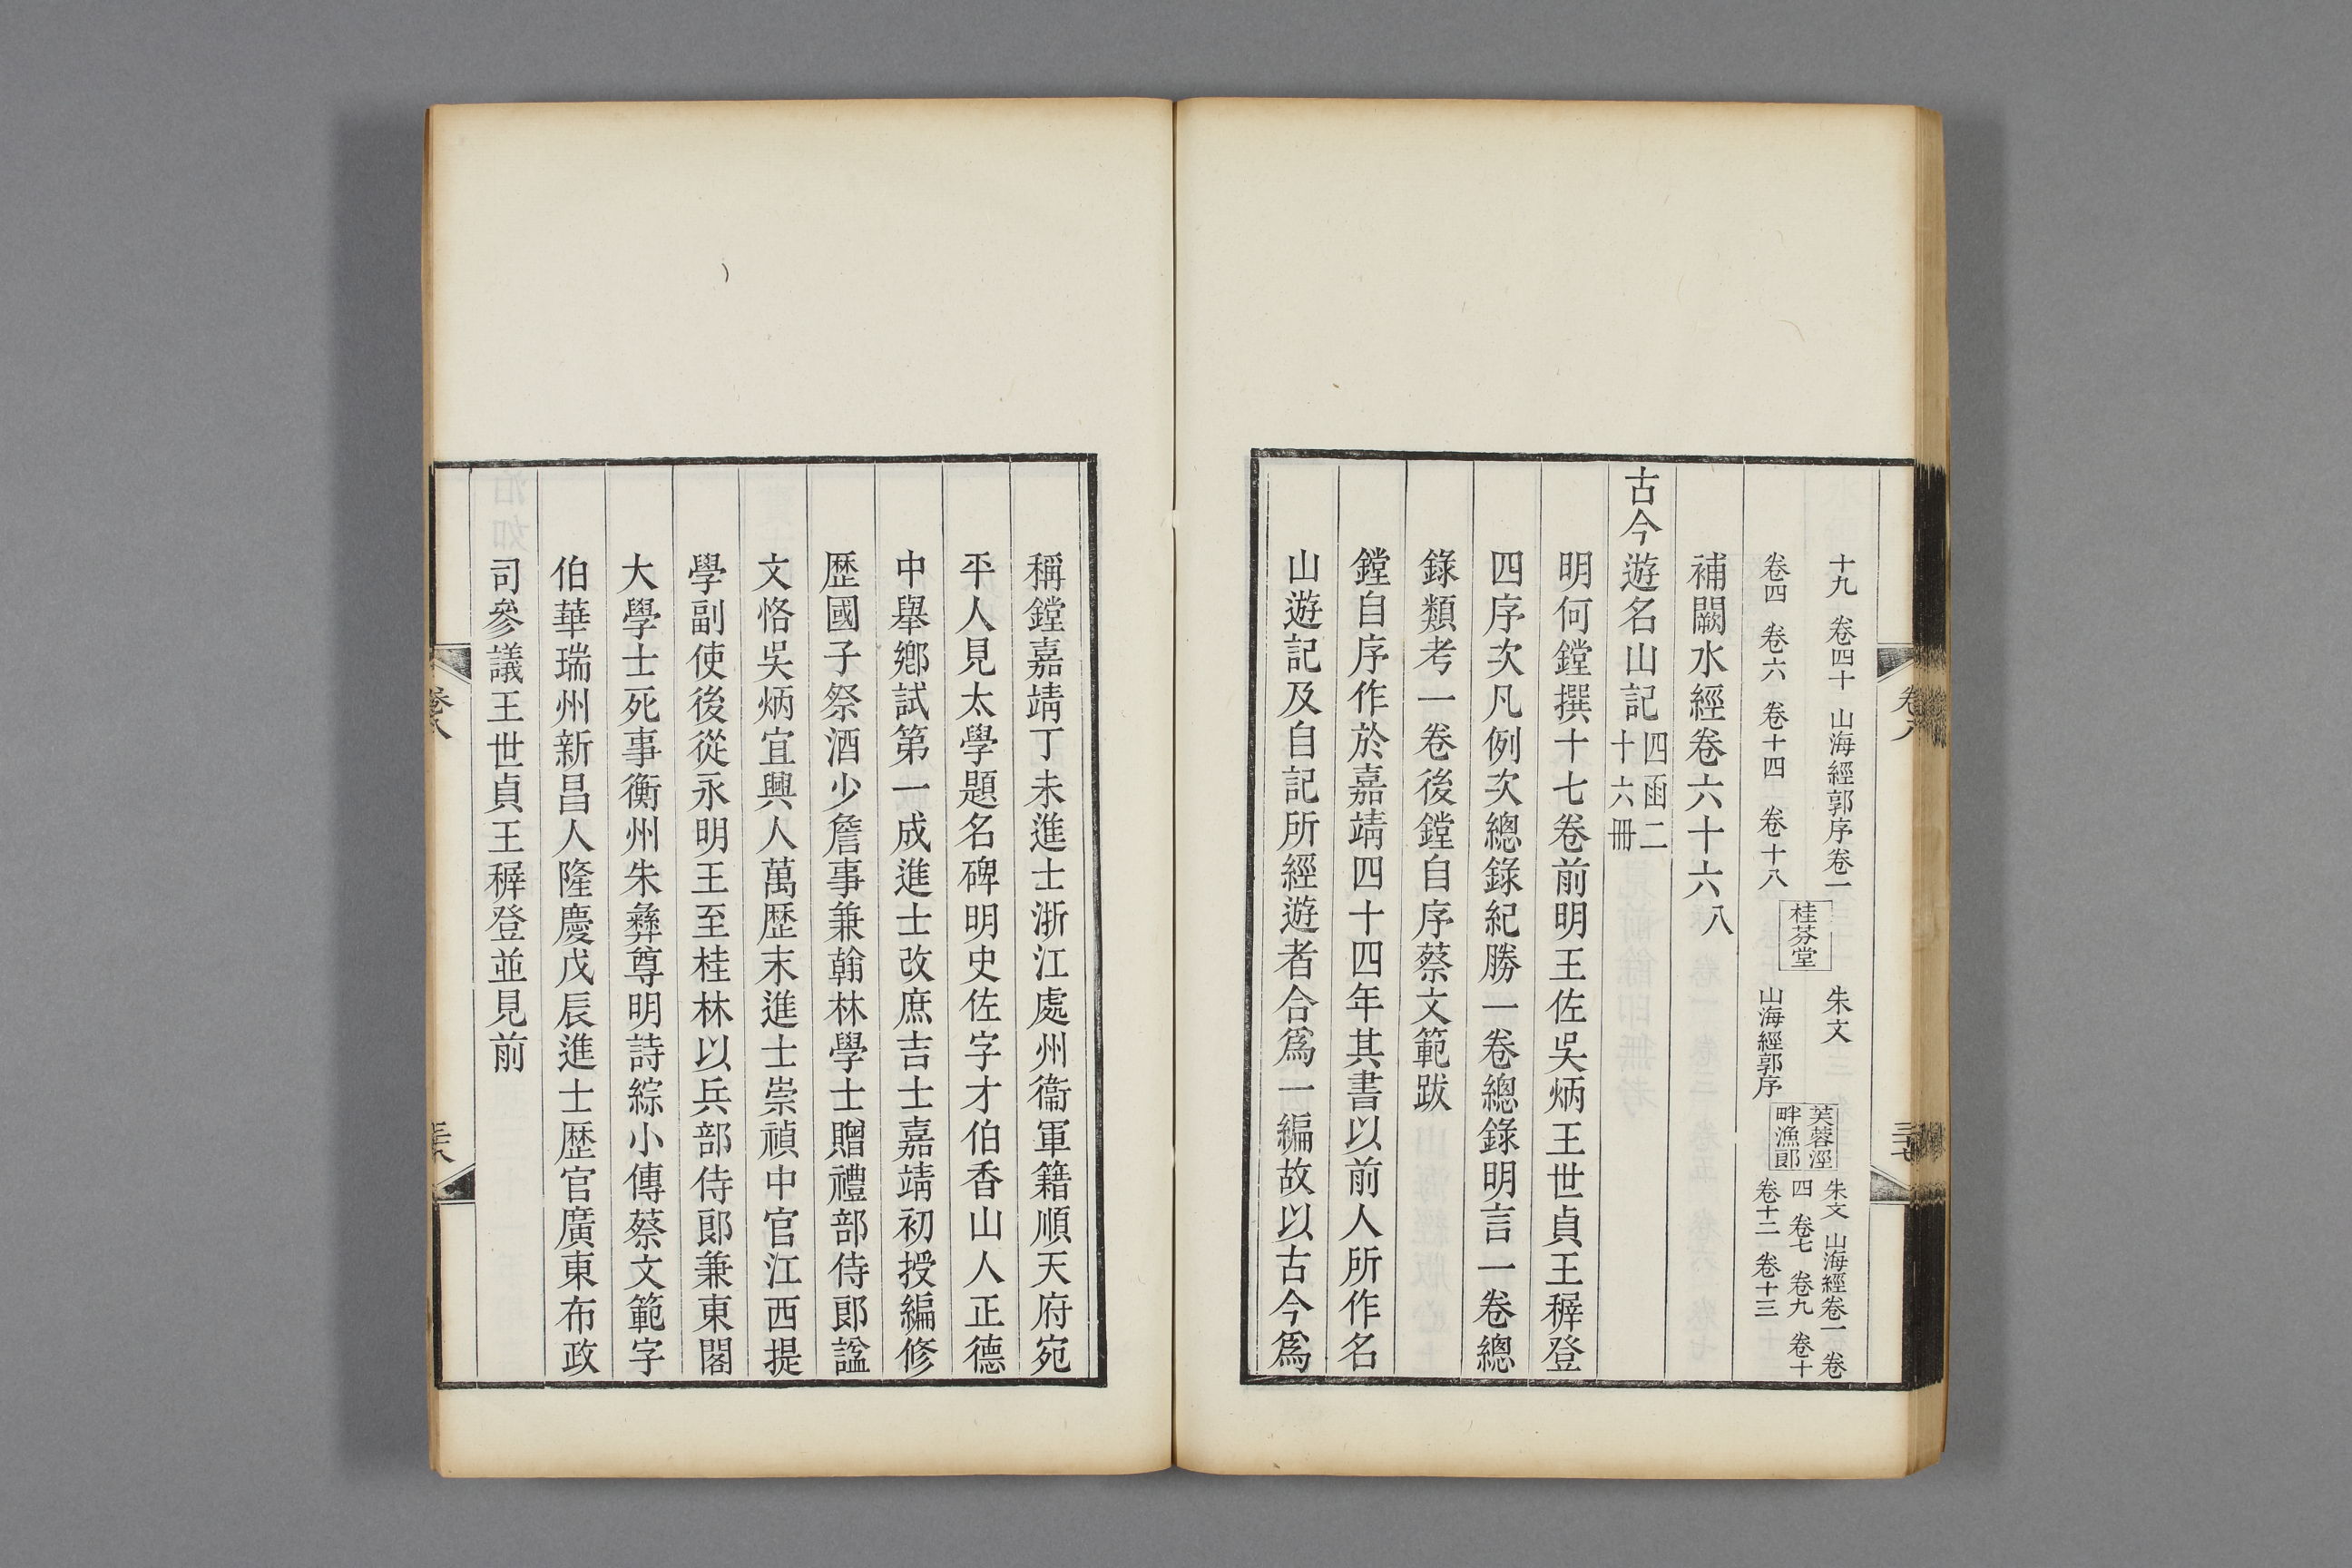 十九 卷四十 山海經郭序卷一
卷四 卷六 卷十四 卷十八
桂芬堂
朱文
山海經郭序
芙蓉涇
畔漁郎
朱文山海經卷一 卷
四 卷七 卷九 卷十
卷十二 卷十三
補闕水經卷六十六八
古今遊名山記四函二
十六冊
明何鏜撰十七卷前明王佐吳炳王世貞王穉登
四序次凡例次總錄紀勝一卷總錄明言一卷總
錄類考一卷後鏜自序蔡文範跋
鏜自序作於嘉靖四十四年其書以前人所作名
山遊記及自記所經遊者合爲一編故以古今爲
卷八
三十七
稱鏜嘉靖丁未進士浙江處州衞軍籍順天府宛
平人見太學題名碑明史佐字才伯香山人正德
中舉鄉試第一成進士改庶吉士嘉靖初授編修
歷國子祭酒少詹事兼翰林學士贈禮部侍郎諡
文恪吳炳宜興人萬歷末進士崇禎中官江西提
學副使後從永明王至桂林以兵部侍郎兼東閣
大學士死事衡州朱彝尊明詩綜小傳蔡文範字
伯華瑞州新昌人隆慶戊辰進士歷官廣東布政
司參議王世貞王穉登並見前
卷八
三十八